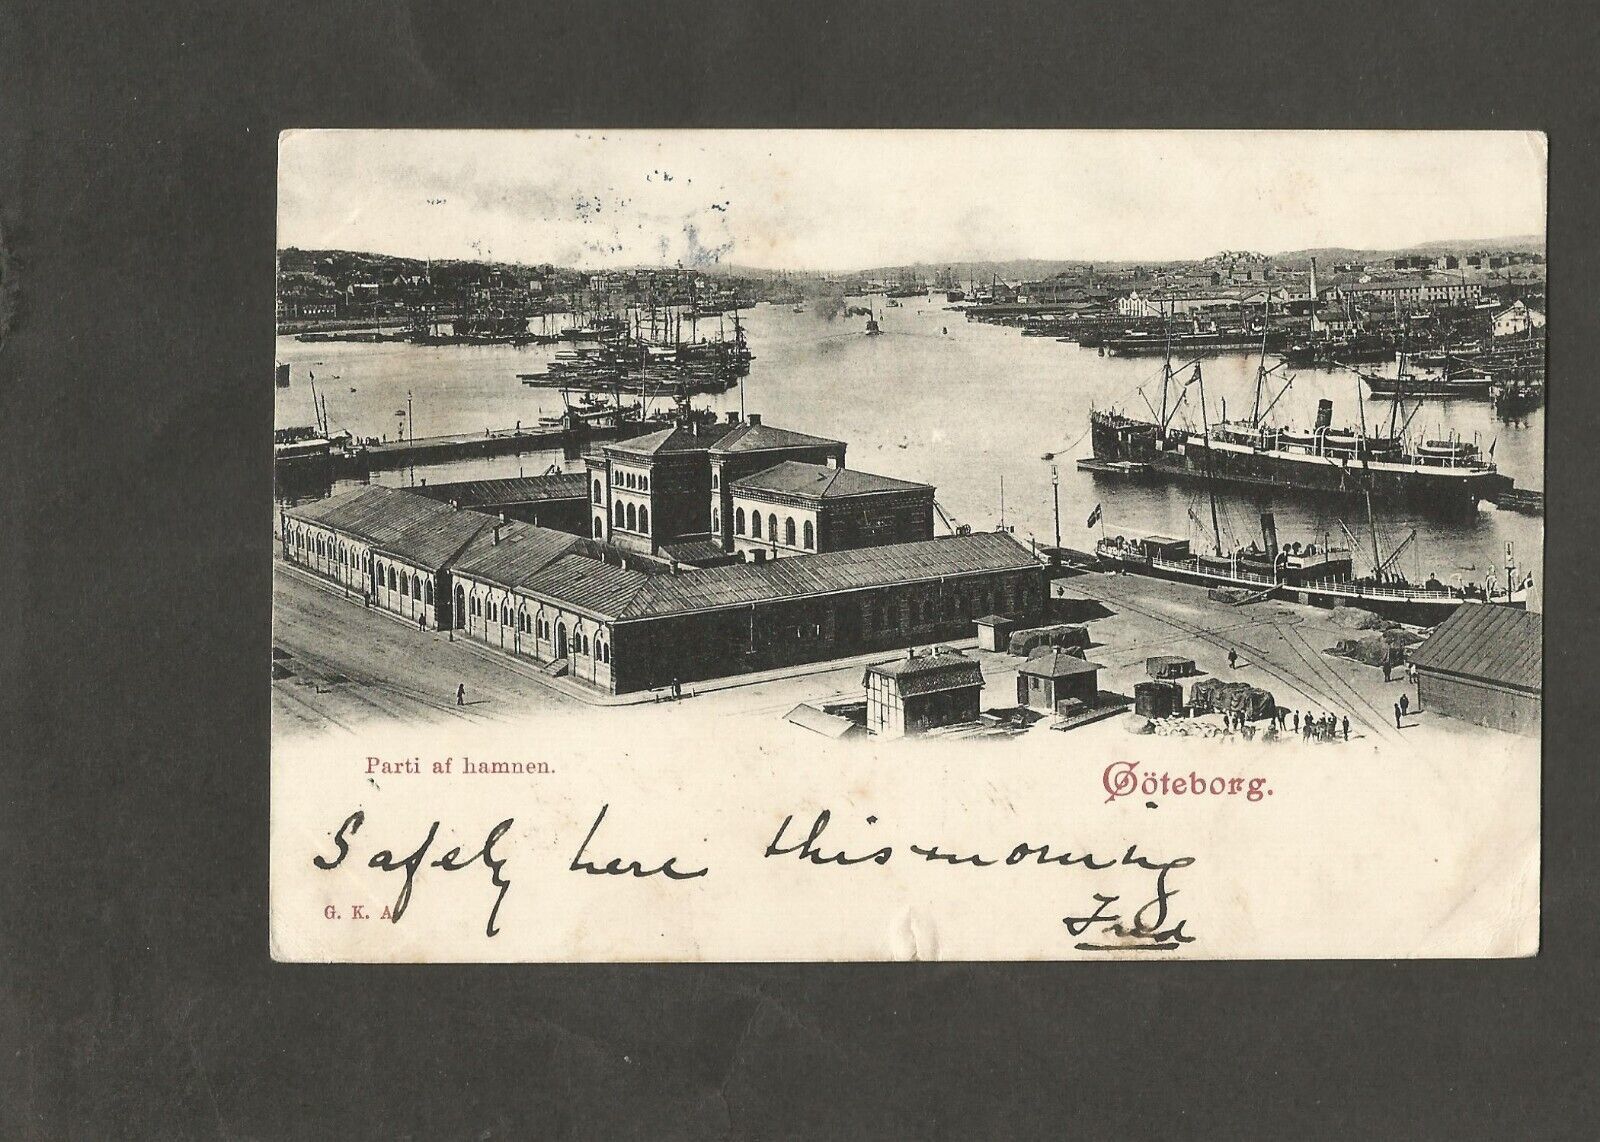 Parti af hamnen.
Göteborg.
Safely here this morning
Fred
G. K. A.